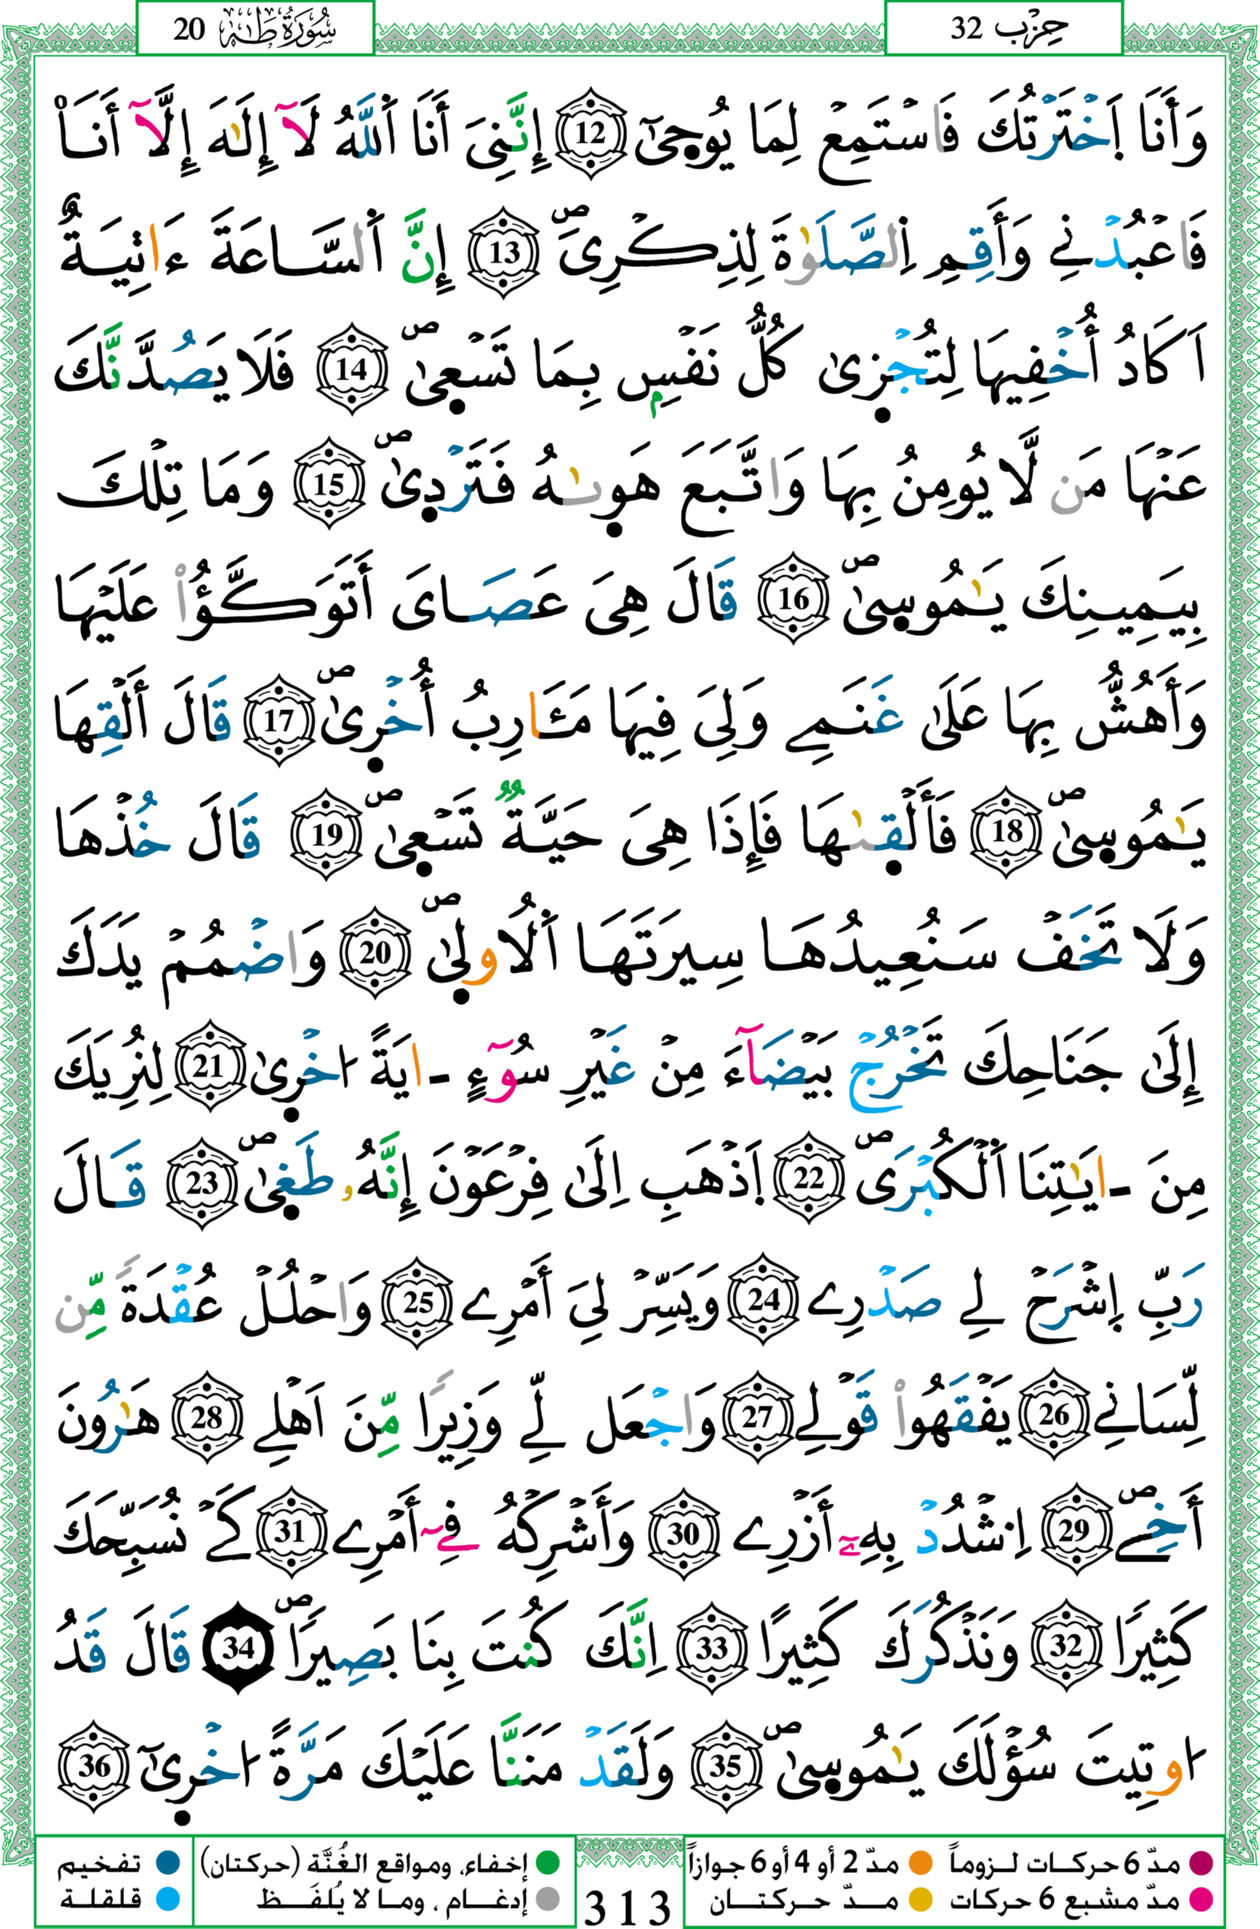 سُورَةُ طَهَ 20
حِزْب 32
وَأَنَا اَخْتَرْتُكَ فَاسْتَمِعْ لِمَا يُوحِىٰٓ 12 إِنَّنِىَ أَنَا اَللَّهُ لَآ إِلَٰهَ إِلَّآ أَنَا۠
فَاعْبُدْنِے وَأَقِمِ اِلصَّلَوٰةَ لِذِكْرِىَ ص 13 إِنَّ اَلسَّاعَةَ ءَاتِيَةٌ
اَكَادُ أُخْفِيهَا لِتُجْزِىٰ كُلُّ نَفْسِۭ بِمَا تَسْعِىٰ ص 14 فَلَا يَصُدَّنَّكَ
عَنْهَا مَن لَّا يُومِنُ بِهَا وَاتَّبَعَ هَوِىٰهُ فَتَرْدِىٰ ص 15 وَمَا تِلْكَ
بِيَمِينِكَ يَٰمُوسِىٰ ص 16 قَالَ هِىَ عَصَاىَ أَتَوَكَّؤُاْ عَلَيْهَا
وَأَهُشُّ بِهَا عَلَىٰ غَنَمِے وَلِىَ فِيهَا مَـَٔارِبُ أُخْرِىٰ ص 17 قَالَ أَلْقِهَا
يَٰمُوسِىٰ ص 18 فَأَلْقِىٰهَا فَإِذَا هِىَ حَيَّةٌ تَسْعِىٰ ص 19 قَالَ خُذْهَا
وَلَا تَخَفْ سَنُعِيدُهَا سِيرَتَهَا اَلُاولِىٰ ص 20 وَاضْمُمْ يَدَكَ
إِلَىٰ جَنَاحِكَ تَخْرُجْ بَيْضَآءَ مِنْ غَيْرِ سُوٓءٍ ـ ايَةً ا خْرِىٰ 21 لِنُرِيَكَ
مِنَ ـ ايَٰتِنَا اَلْكُبْرَى ص 22 اَذْهَبِ اِلَىٰ فِرْعَوْنَ إِنَّهُۥ طَغِىٰ ص 23 قَالَ
رَبِّ اِشْرَحْ لِے صَدْرِے 24 وَيَسِّرْ لِىَ أَمْرِے 25 وَاحْلُلْ عُقْدَةً مِّن
لِّسَانِے 26 يَفْقَهُواْ قَوْلِے 27 وَاجْعَل لِّے وَزِيرًا مِّنَ اَهْلِے 28 هَٰرُونَ
أَخِے ص 29 اِشْدُدْ بِهِۦٓ أَزْرِے 30 وَأَشْرِكْهُ فِےٓ أَمْرِے 31 كَےْ نُسَبِّحَكَ
كَثِيرًا 32 وَنَذْكُرَكَ كَثِيرًا 33 اِنَّكَ كُنتَ بِنَا بَصِيرًا ص 34 قَالَ قَدُ
ا وتِيتَ سُؤْلَكَ يَٰمُوسِىٰ ص 35 وَلَقَدْ مَنَنَّا عَلَيْكَ مَرَّةً ا خْرِىٰٓ 36
مدّ 6 حركات لـزوماً مدّ 2 أو 4 أو 6 جوازاً إخفاء، ومواقع الغُنَّة (حركتان) تفخيم
مدّ مشبع 6 حركات مـدّ حركتـان 313 إدغـام ، ومـا لا يُلفَـظ قلقلة